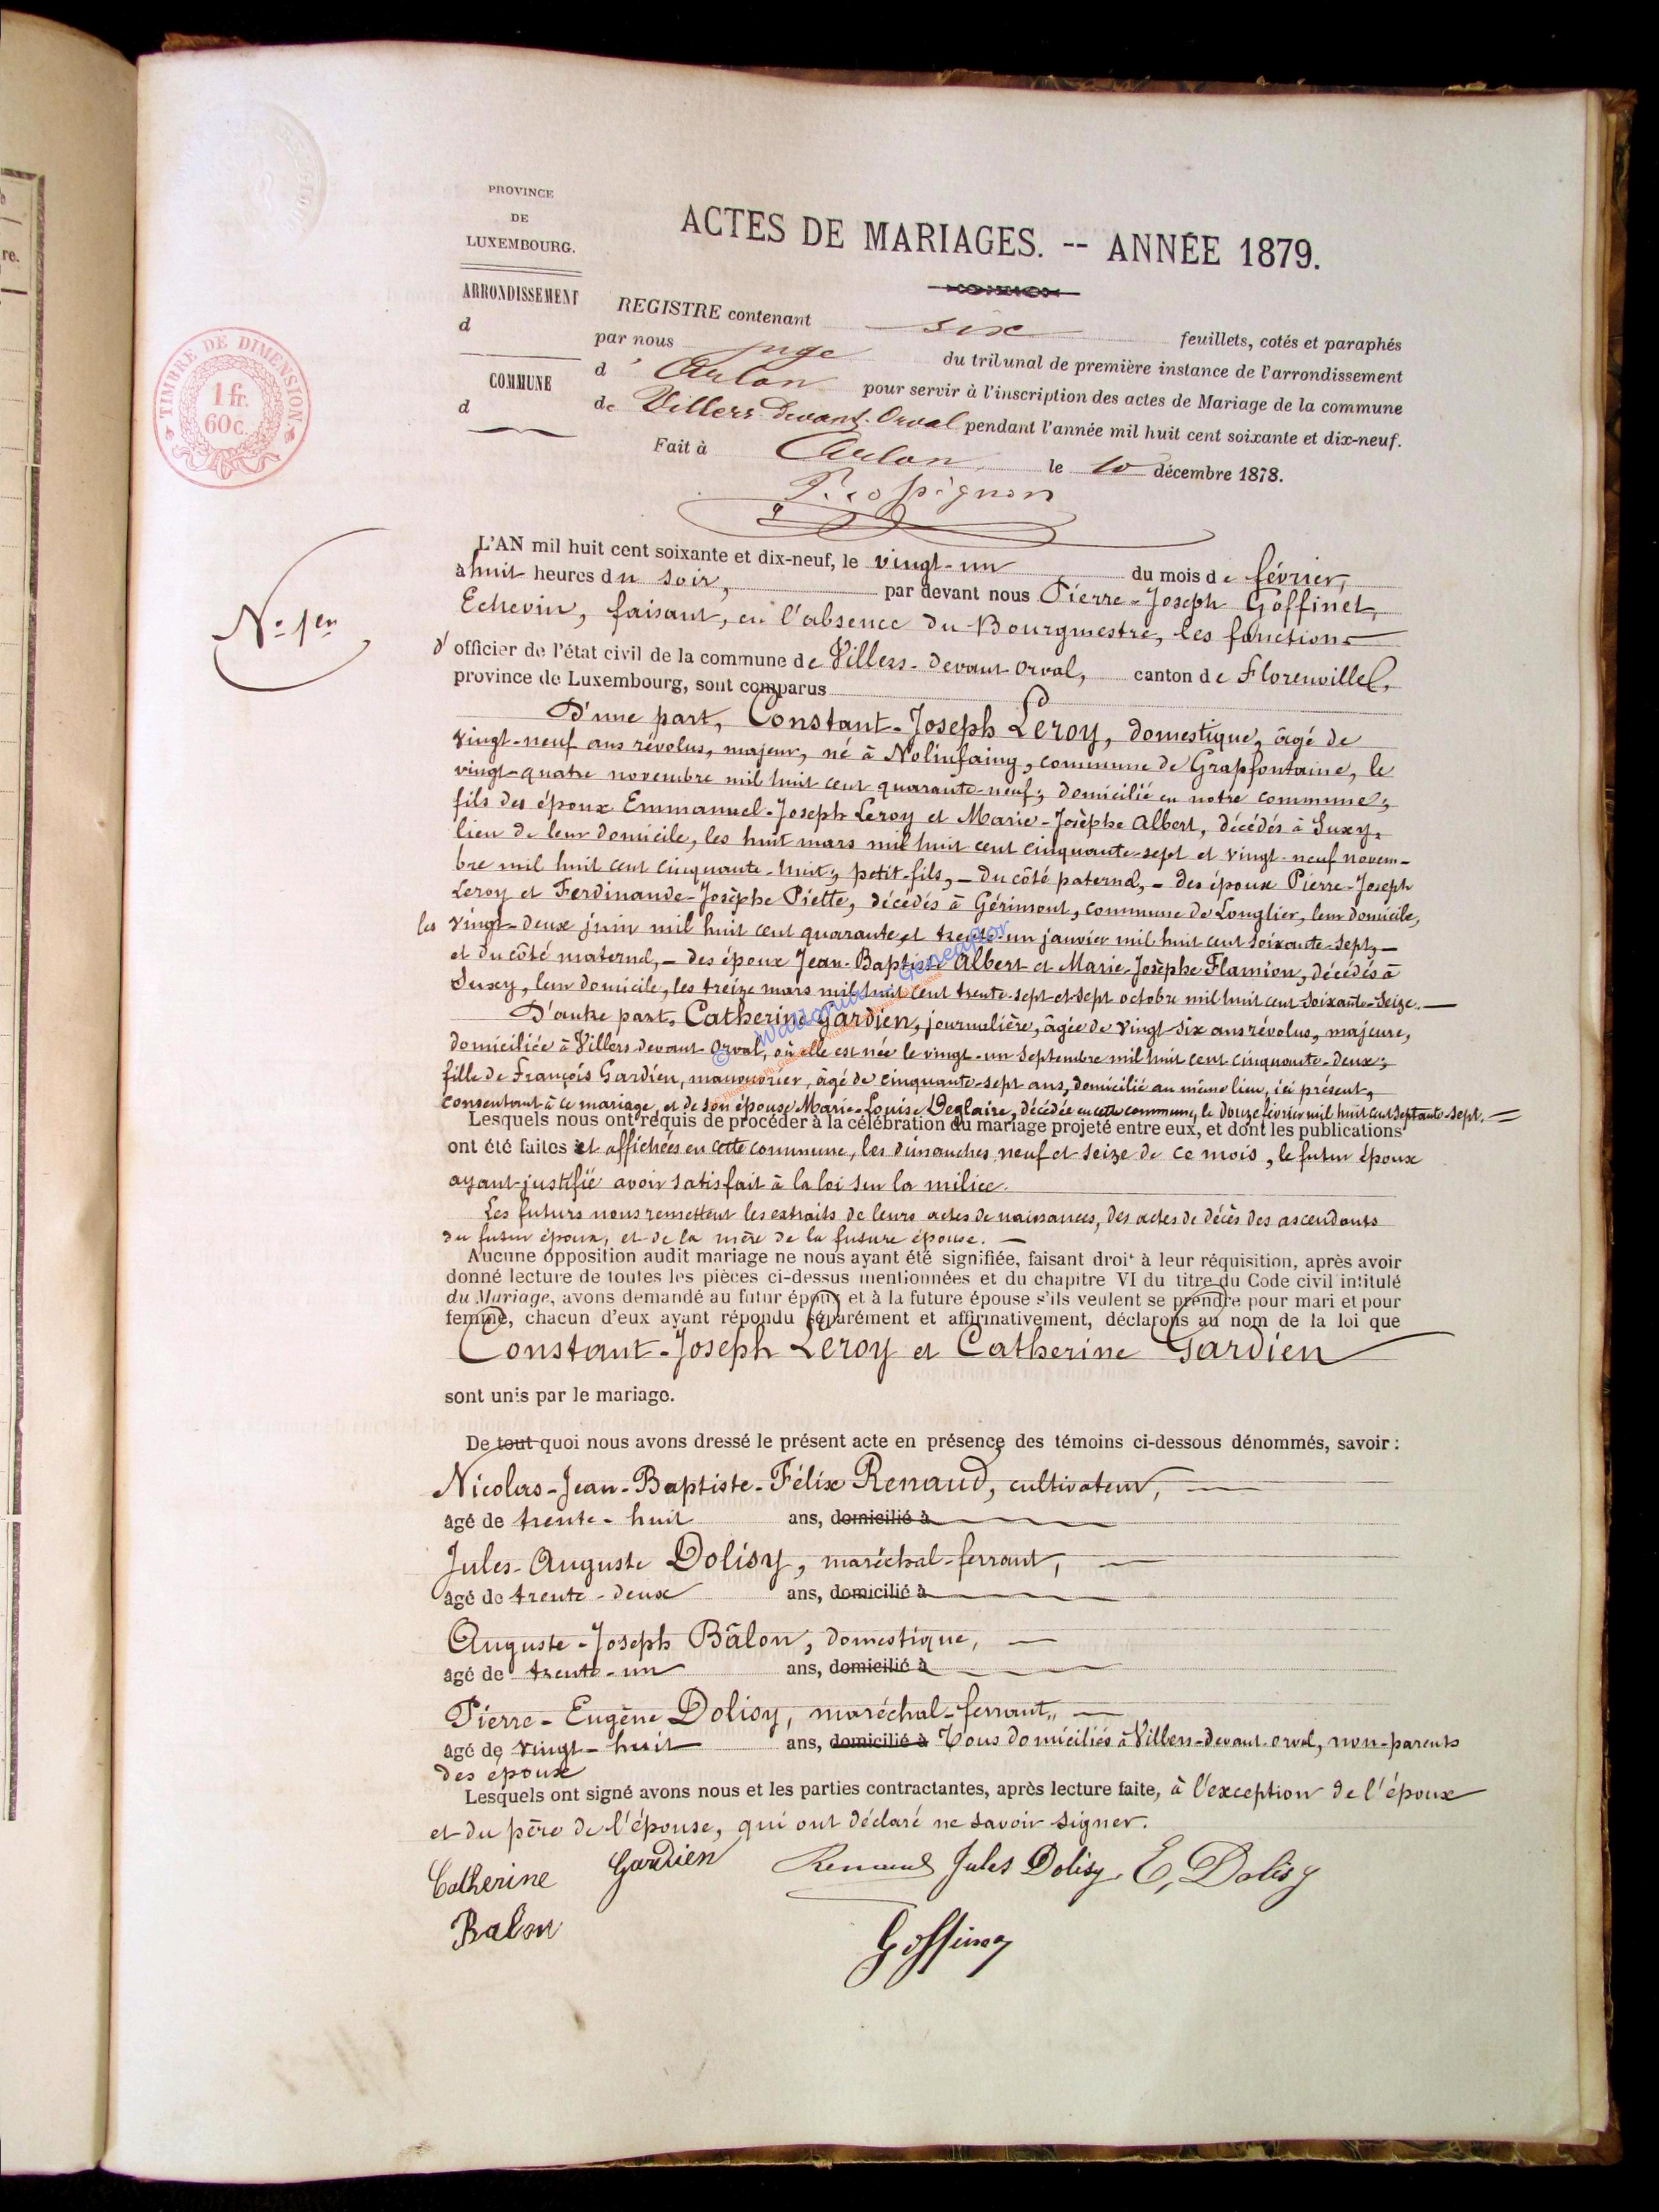 re.
PROVINCE
DE
LUXEMBOURG.
ARRONDISSEMENT
d
COMMUNE
d
TIMBRE DE DIMENSION.
1 fr.
60 c.
ACTES DE MARIAGES. -- ANNÉE 1879.
REGISTRE contenant six feuillets, cotés et paraphés
par nous juge du tribunal de première instance de l'arrondissement
d' Arlon pour servir à l'inscription des actes de Mariage de la commune
de Villers devant Orval pendant l'année mil huit cent soixante et dix-neuf.
Fait à Arlon, le 10 décembre 1878.
N° 1er
L'AN mil huit cent soixante et dix-neuf, le vingt-un du mois de février,
à huit heures du soir, par devant nous Pierre-Joseph Goffinet,
Echevin, faisant, en l'absence du Bourgmestre, les fonctions
d'officier de l'état civil de la commune de Villers-devant-Orval, canton de Florenville,
province de Luxembourg, sont comparus
D'une part, Constant-Joseph Leroy, domestique, âgé de
vingt-neuf ans révolus, majeur, né à Nolinfaing, commune de Grapfontaine, le
vingt-quatre novembre mil huit cent quarante-neuf; domicilié en notre commune;
fils des époux Emmanuel-Joseph Leroy et Marie-Josèphe Albert, décédés à Suxy,
lieu de leur domicile, les huit mars mil huit cent cinquante-sept et vingt-neuf novem-
bre mil huit cent cinquante-huit; petit-fils, - du côté paternel, - des époux Pierre-Joseph
Leroy et Ferdinande-Josèphe Piette, décédés à Gérimont, commune de Longlier, leur domicile,
les vingt-deux juin mil huit cent quarante et trente-un janvier mil huit cent soixante-sept, -
et du côté maternel, - des époux Jean-Baptiste Albert et Marie-Josèphe Flamion, décédés à
Suxy, leur domicile, les treize mars mil huit cent trente-sept et sept octobre mil huit cent soixante-seize. -
D'autre part, Catherine Gardien, journalière, âgée de vingt-six ans révolus, majeure,
domiciliée à Villers-devant-Orval, où elle est née le vingt-un septembre mil huit cent cinquante-deux;
fille de François Gardien, manouvrier, âgé de cinquante-sept ans, domicilié au même lieu, ici présent,
consentant à ce mariage, et de son épouse Marie-Louise Deglaire, décédée en cette commune, le douze février mil huit cent septante-sept. =
Lesquels nous ont requis de procéder à la célébration du mariage projeté entre eux, et dont les publications
ont été faites et affichées en cette commune, les dimanches neuf et seize de ce mois, le futur époux
ayant justifié avoir satisfait à la loi sur la milice.
Les futurs nous remettent les extraits de leurs actes de naissances, des actes de décès des ascendants
du futur époux, et de la mère de la future épouse. -
Aucune opposition audit mariage ne nous ayant été signifiée, faisant droit à leur réquisition, après avoir
donné lecture de toutes les pièces ci-dessus mentionnées et du chapitre VI du titre du Code civil intitulé
du Mariage, avons demandé au futur époux et à la future épouse s'ils veulent se prendre pour mari et pour
femme, chacun d'eux ayant répondu séparément et affirmativement, déclarons au nom de la loi que
Constant-Joseph Leroy et Catherine Gardien
sont unis par le mariage.
De tout quoi nous avons dressé le présent acte en présence des témoins ci-dessous dénommés, savoir :
Nicolas-Jean-Baptiste-Félix Renaud, cultivateur,
âgé de trente-huit ans, domicilié à
Jules-Auguste Dolisy, maréchal-ferrant,
âgé de trente-deux ans, domicilié à
Auguste-Joseph Bâlon, domestique,
âgé de trente-un ans, domicilié à
Pierre-Eugène Dolisy, maréchal-ferrant,
âgé de vingt-huit ans, domicilié à Tous domiciliés à Villers-devant-Orval, non-parents
des époux
Lesquels ont signé avons nous et les parties contractantes, après lecture faite, à l'exception de l'époux
et du père de l'épouse, qui ont déclaré ne savoir signer.
Catherine Gardien Renaud Jules Dolisy E, Dolisy
Balon Goffinet